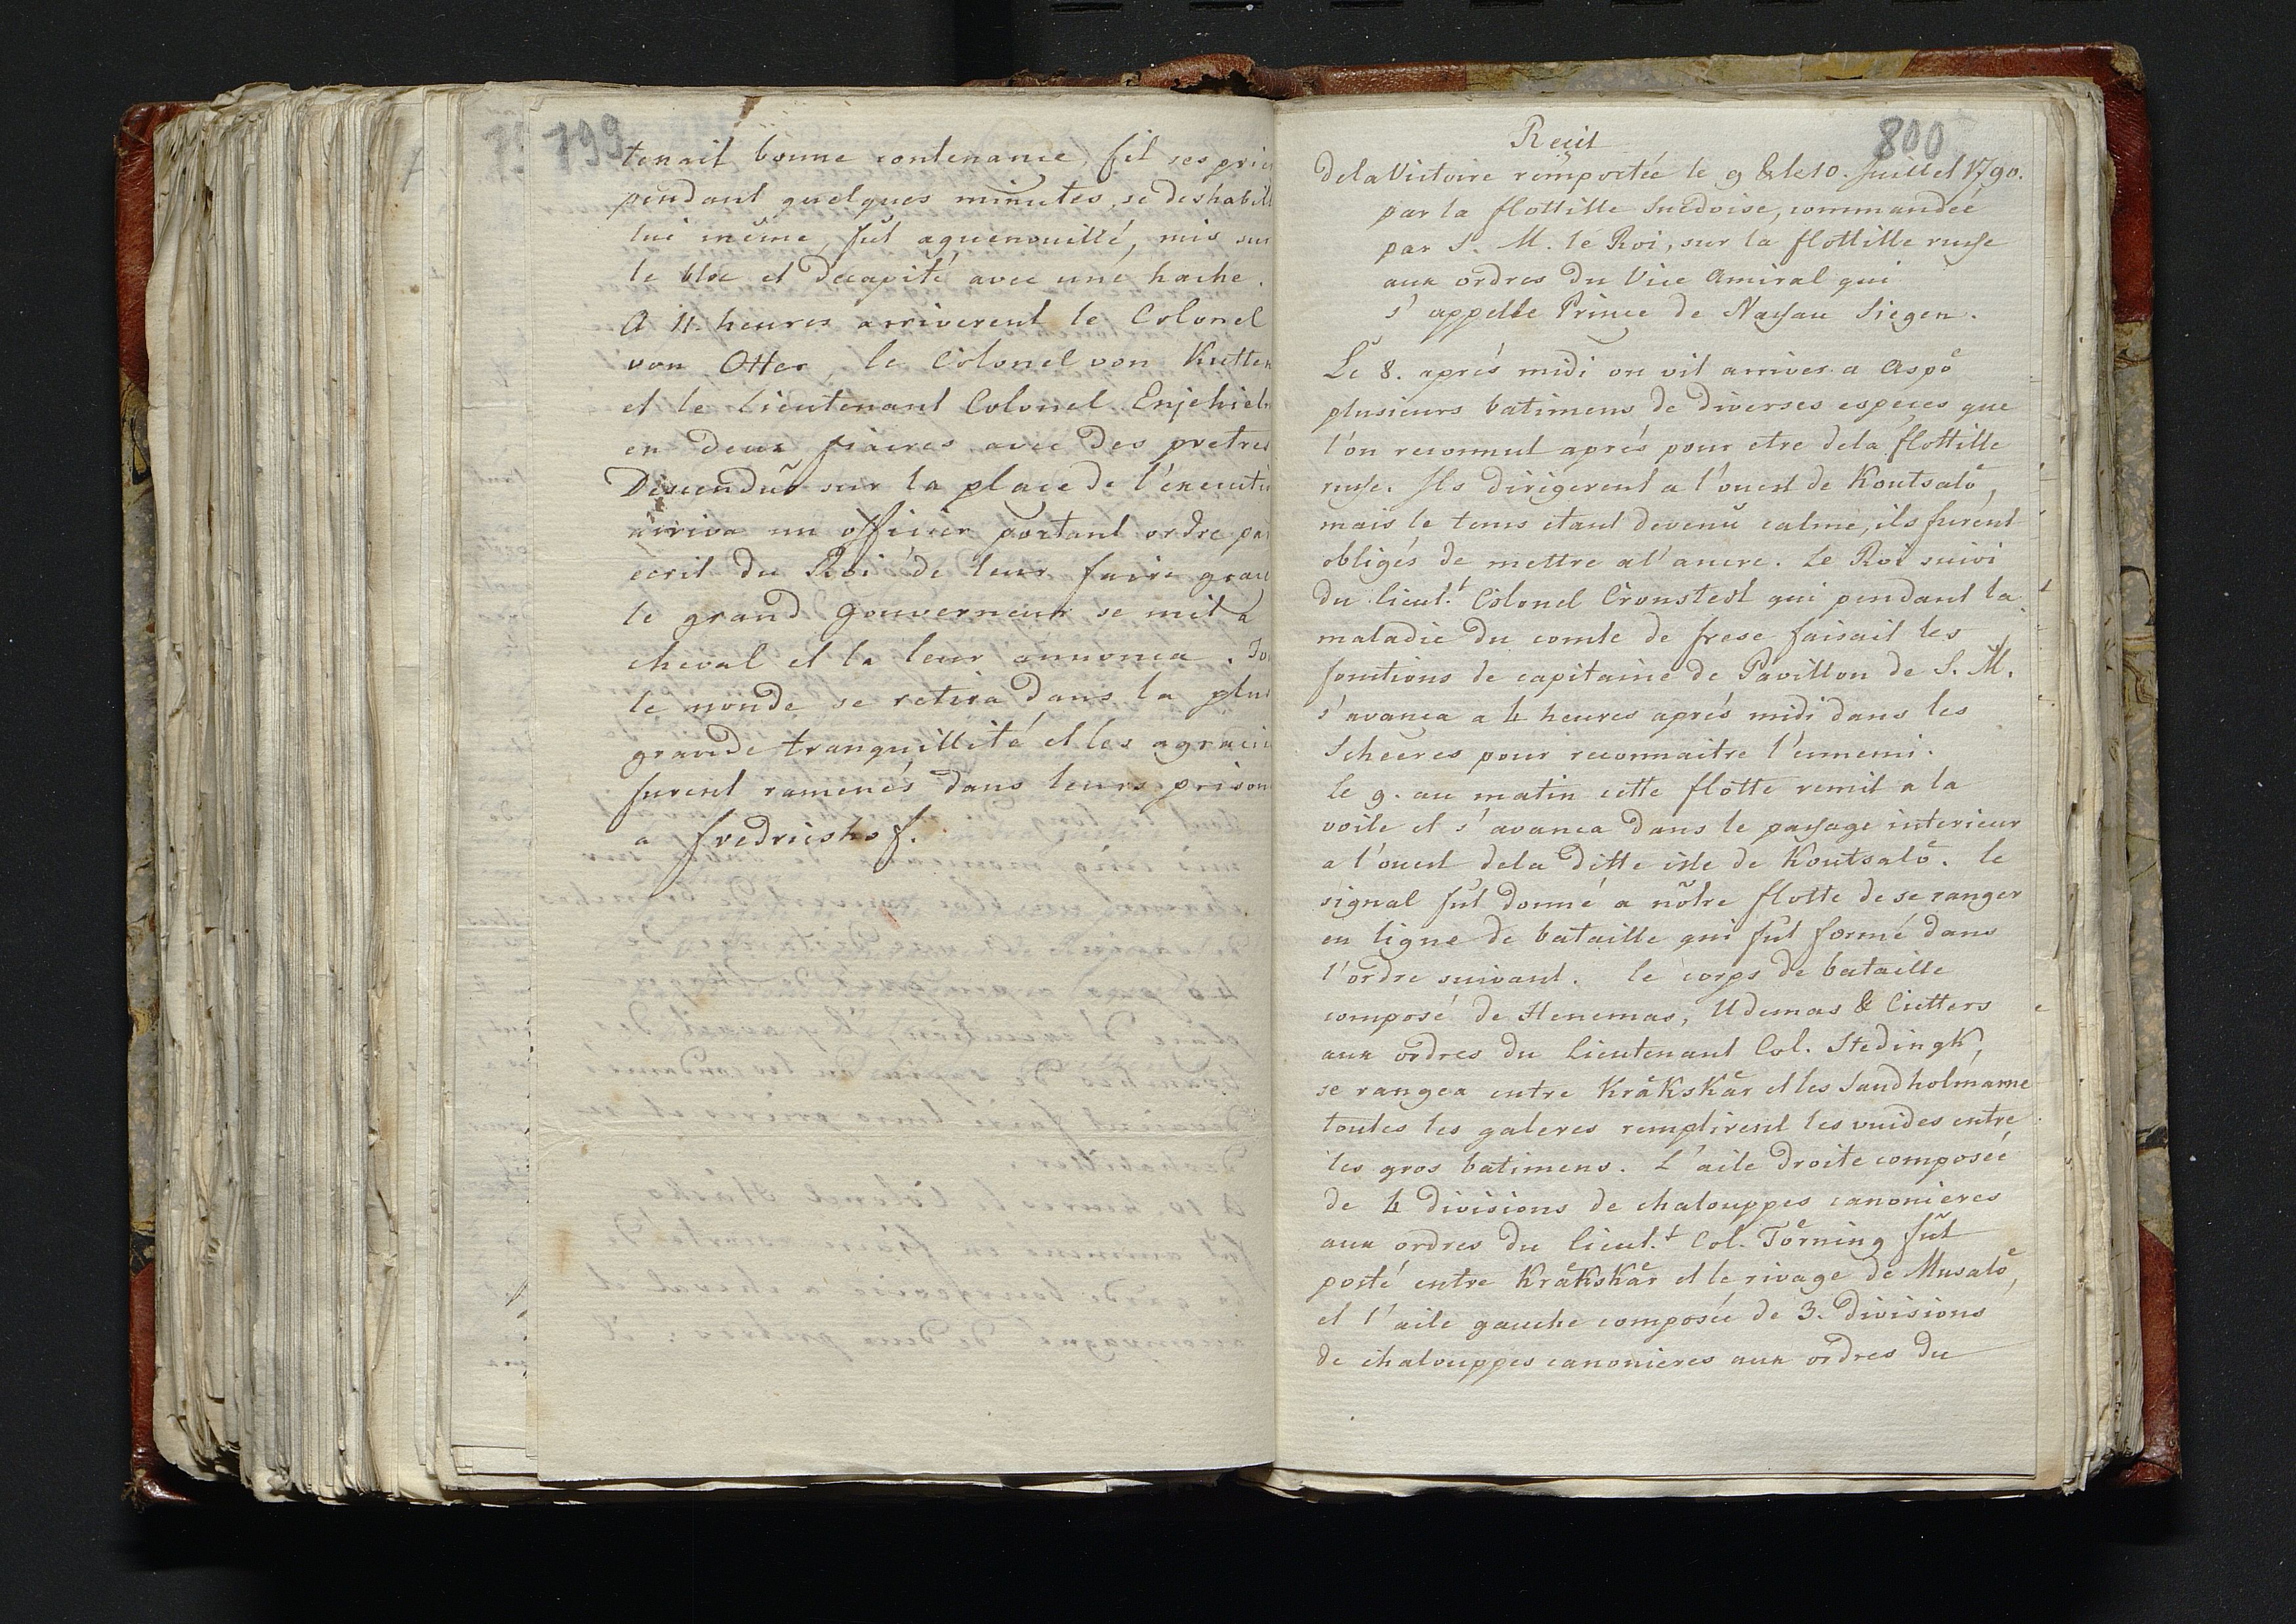 799
tenait bonne contenance, fit ses
pendant quelques minutes, se deshabill
lui même, fut aguenouillé, mis sur
le bloc et decapité avec une hache.
A 11. heures arriverent le Colonel
von Otter, le Colonel von
et le Lieutenant Colonel Enjehiel
en deux fiacres avec des pretres
Descendus sur la place de l'executi
arriva un officier portant ordre pa
ecrit du Roi de leur faire grac
le grand gouverneur se mit a
cheval et la leur annonca. To
le monde se retira dans la plus
grande tranquillité et les agracie
furent ramenés dans leurs prison
a fredricshof.
800
Recit
dela Victoire remportée le 9 & le 10. Juillet 1790.
par la flottille Suedoise, commandée
par S. M. le Roi, sur la flottille russe
aux ordres du Vice Amiral qui
s'appelle Prince de Nassau Siegen.
Le 8. aprés midi on vit arriver a Aspö
plusieurs batimens de diverses especes que
l'on reconnut aprés pour etre dela flottille
russe. Ils dirigerent a l'ouest de Koutsalö,
mais le tems etant devenu calme, ils furent
obligés de mettre a l'ancre. Le Roi suivi
du Lieut.t Colonel Cronstedt qui pendant la
maladie du comte de frese faisait les
fonctions de capitaine de Pavillon de S. M.
s'avanca a 4 heures aprés midi dans les
Scheeres pour reconnaitre l'ennemi.
Le 9. au matin cette flotte remit a la
voile et s'avanca dans le passage interieur
a l'ouest dela ditte isle de Koutsalö. le
signal fut donné a nôtre flotte de se ranger
en ligne de bataille qui fut formé dans
l'ordre suivant. le corps de bataille
composé de Henemas, Udemas & Cutters
aux ordres du Lieutenant Col. Stedingk,
se rangea entre Kråkskär et les Sandholmarne
toutes les galeres remplirent les vuides entre
les gros batimens. L'aile droite composée
de 4 divisions de chalouppes canonieres
aux ordres du Lieut.t Col. Törning fut
posté entre Kråkskär et le rivage de Musalö,
et l'aile gauche composée de 3. divisions
de chalouppes canonieres aux ordres du